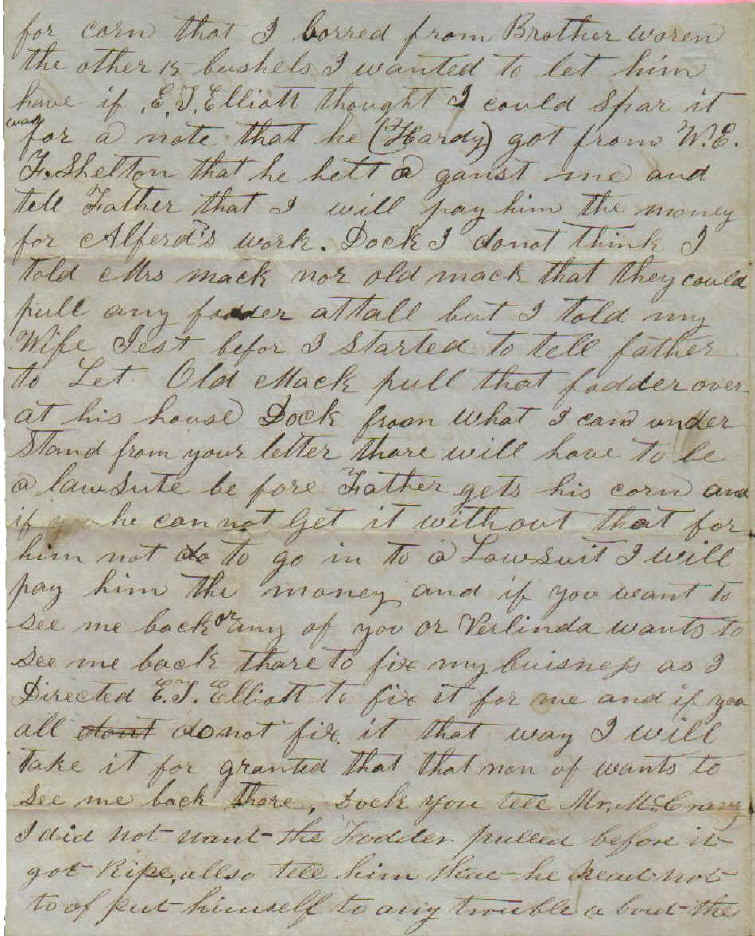 for corn that I borred from Brother woren
the other 15 bushels I wanted to let him
have if E.T. Elliott thought I could Spar it
was
for a note that he (Hardy) got from W.E.
F. Shelton that he helt a ganst me and
tell Father that I will pay him the money
for Alferd's work. Dock I donot think I
told Mrs mack nor old mack that they could
pull any fodder attall but I told my
Wife Jest befor I started to tell father
to Let Old Mack pull that fodder over
at his house Dock from what I can under
Stand from your letter thare will have to be
a lawsute be fore Father gets his corn and
if he can not get it without that for
him not do to go in to a Lawsuit I will
pay him the money and if you want to
see me back or any of you or Verlinda wants to
see me back thare to fix my buisness as I
Directed E.T. Elliott to fix it for me and if you
all dont donot fix it that way I will
take it for granted that that non of wants to
See me back thare, Dock you tell Mr. McCrary
I did not want the Fodder pulled before it
got Ripe, allso tell him that he Nead not
to of put himself to any trouble a bout the